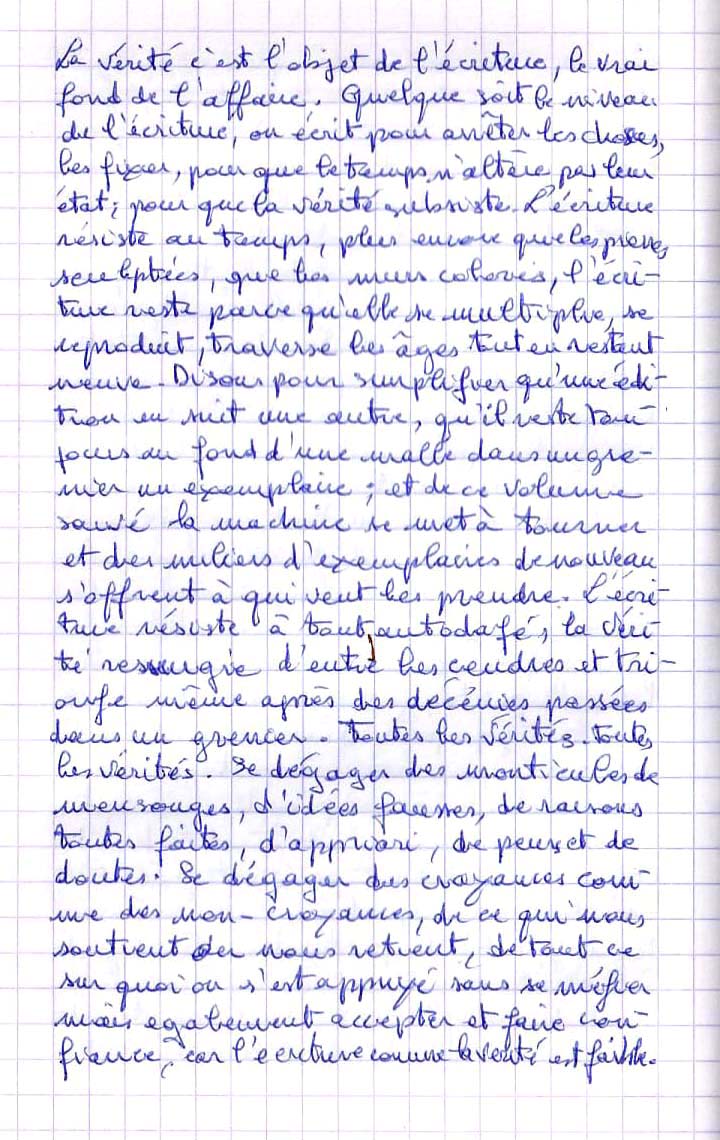 La vérité c'est l'objet de l'écriture, le vrai
fond de l'affaire. Quelque soit le niveau
de l'écriture, on écrit pour arrêter les choses,
les fixer, pour que le temps n'altère pas leur
état ; pour que la vérité subsiste. L'écriture
résiste au temps, plus encore que les pierres
sculptées, que les murs colorés, l'écri-
ture reste parce qu'elle se multiplie, se
reproduit, traverse les âges tout en restant
neuve. Disons pour simplifier qu'une édi-
tion en suit une autre, qu'il reste tou-
jours au fond d'une malle dans un gre-
nier un exemplaire ; et de ce volume
sauvé la machine se met à tourner
et des milliers d'exemplaires de nouveau
s'offrent à qui veut les prendre. L'écri-
ture résiste à tout autodafé, la véri-
té resurgie d'entre les cendres et tri-
omfe même après des décénies passées
dans un grenier. Toutes les vérités. Toutes
les vérités. Se dégager des monticules de
mensonges, d'idées fausses, de raisons
toutes faites, d'appriori, de peurs et de
doutes. Se dégager des croyances com-
me des non-croyances, de ce qui nous
soutient ou nous retient, de tout ce
sur quoi on s'est appuyé sans se méfier
mais egalement accepter et faire con-
fiance, car l'écriture comme la vérité est faible.